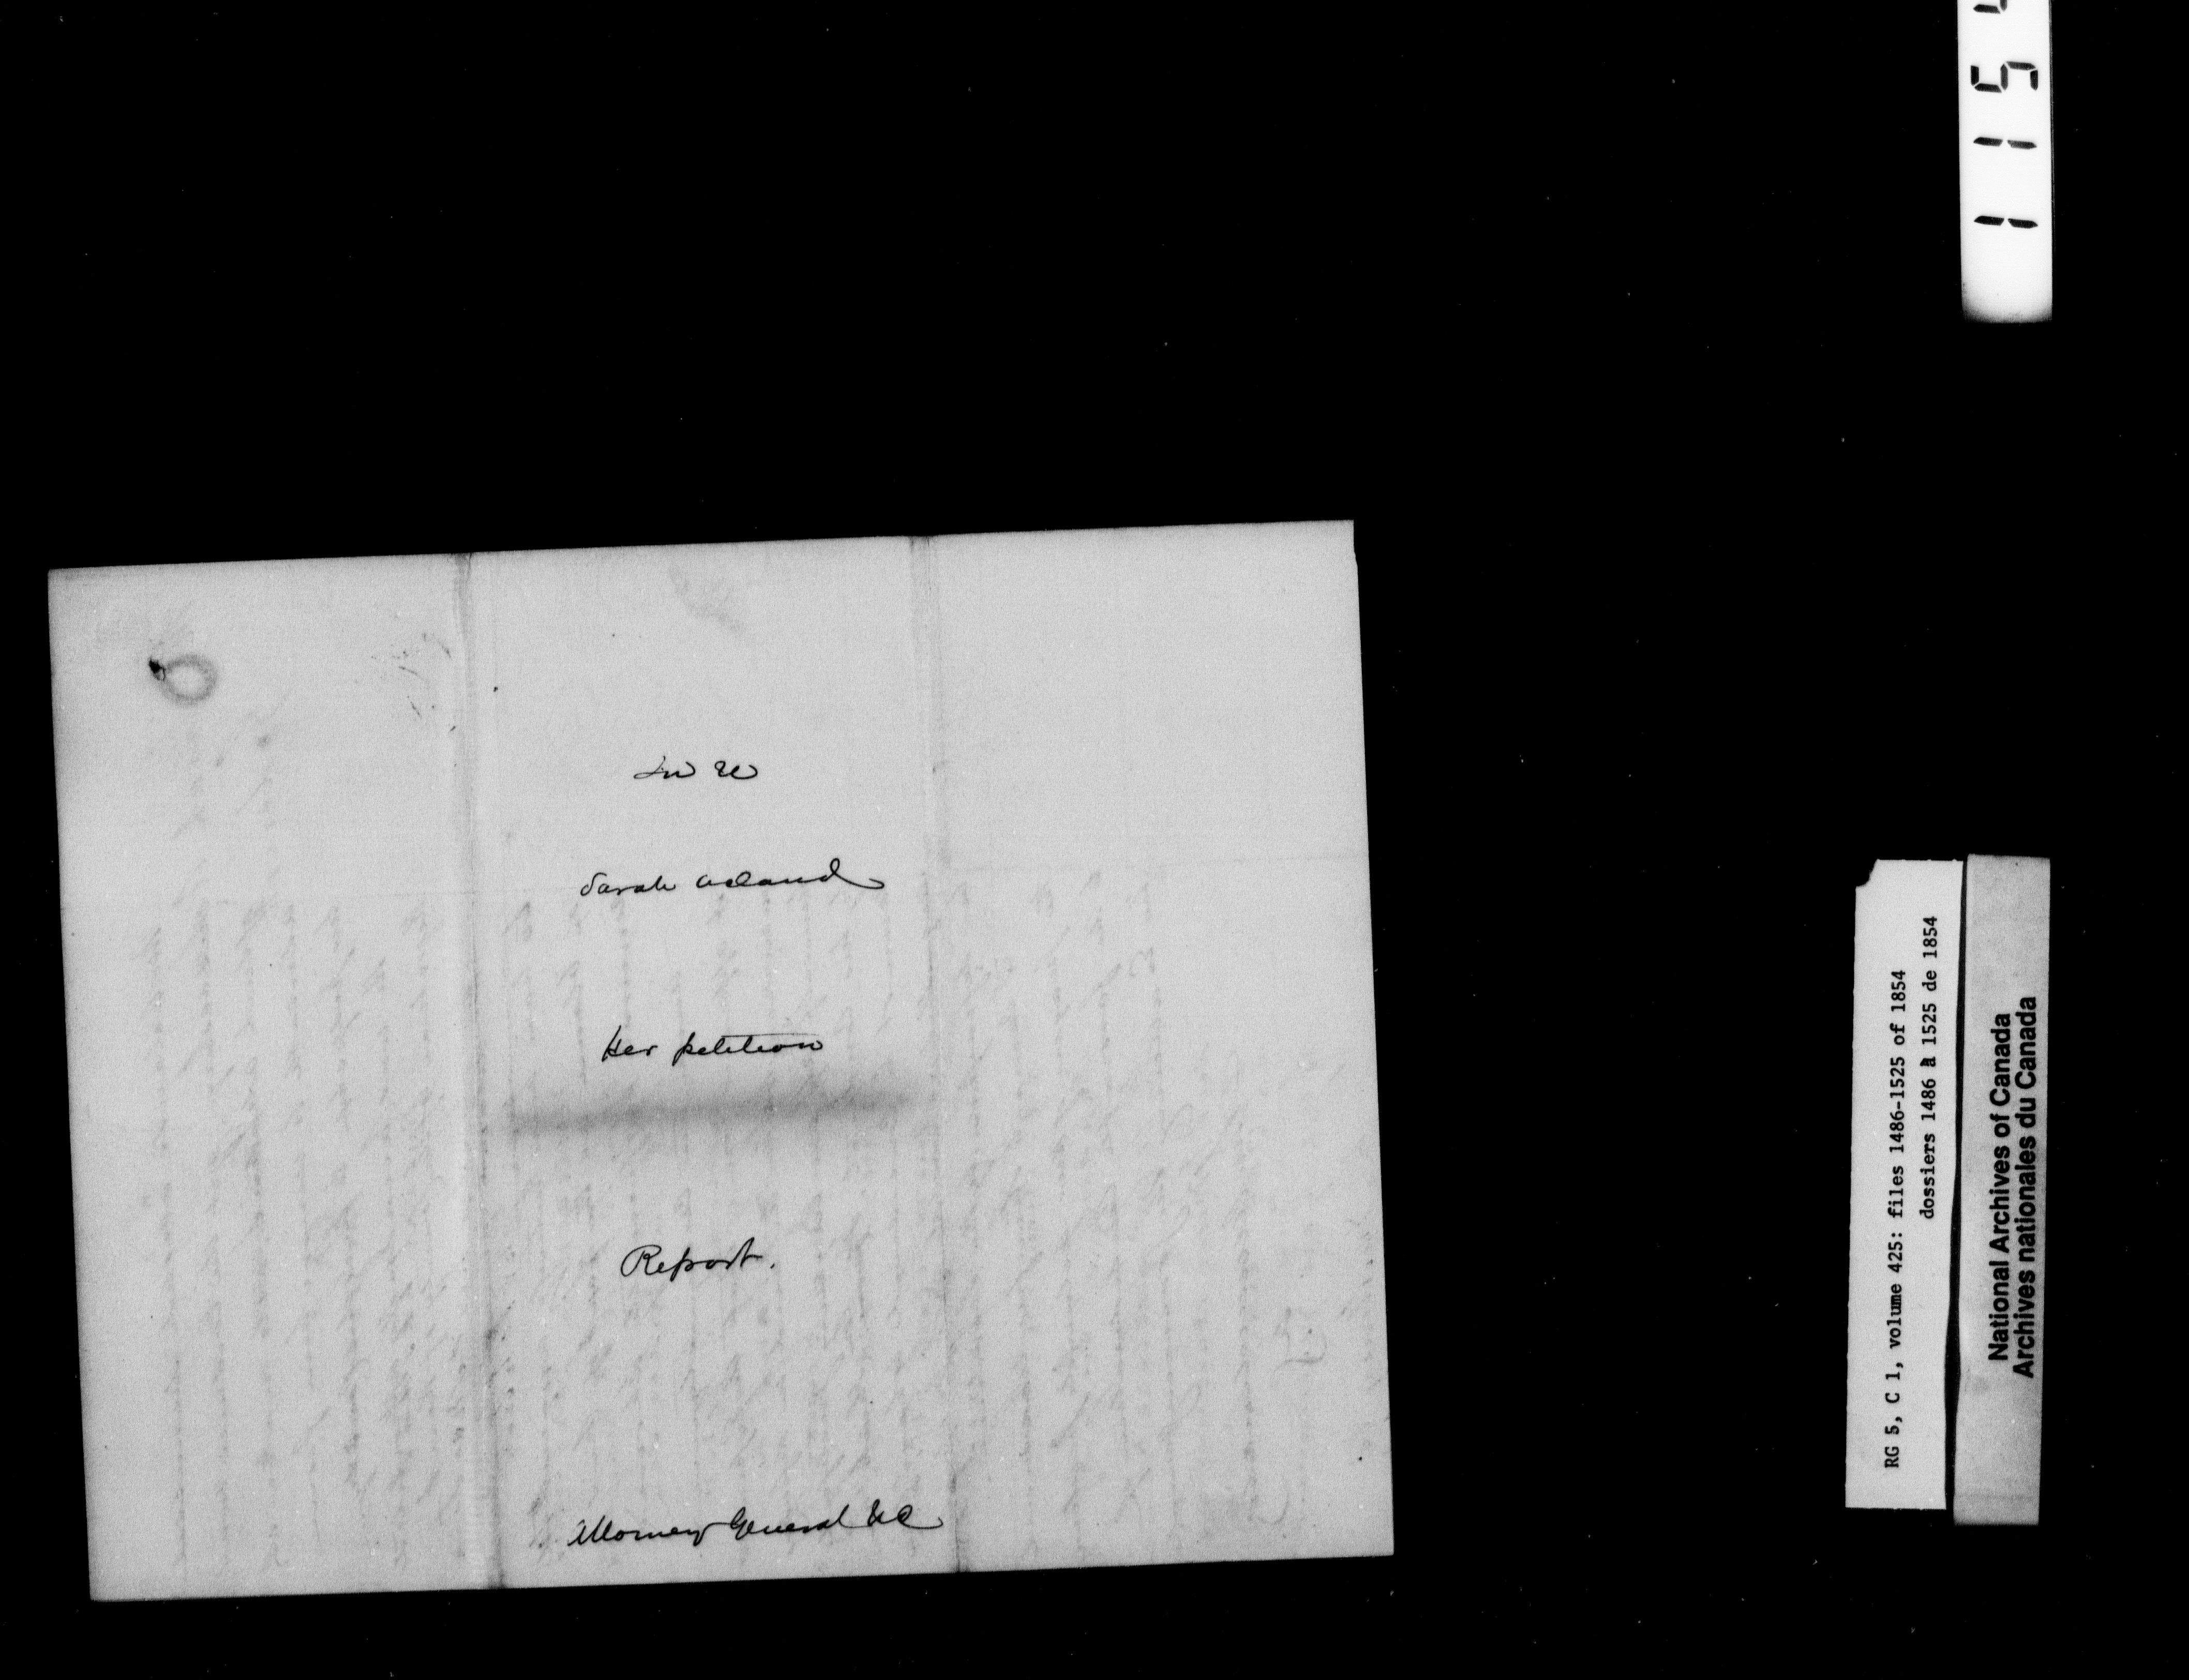 In re
Sarah Acland
Her petition
Report.
Attorney General U C
RG 5, C 1, volume 425: files 1486-1525 of 1854
dossiers 1486 à 1525 de 1854
National Archives of Canada
Archives nationales du Canada
1 1 5